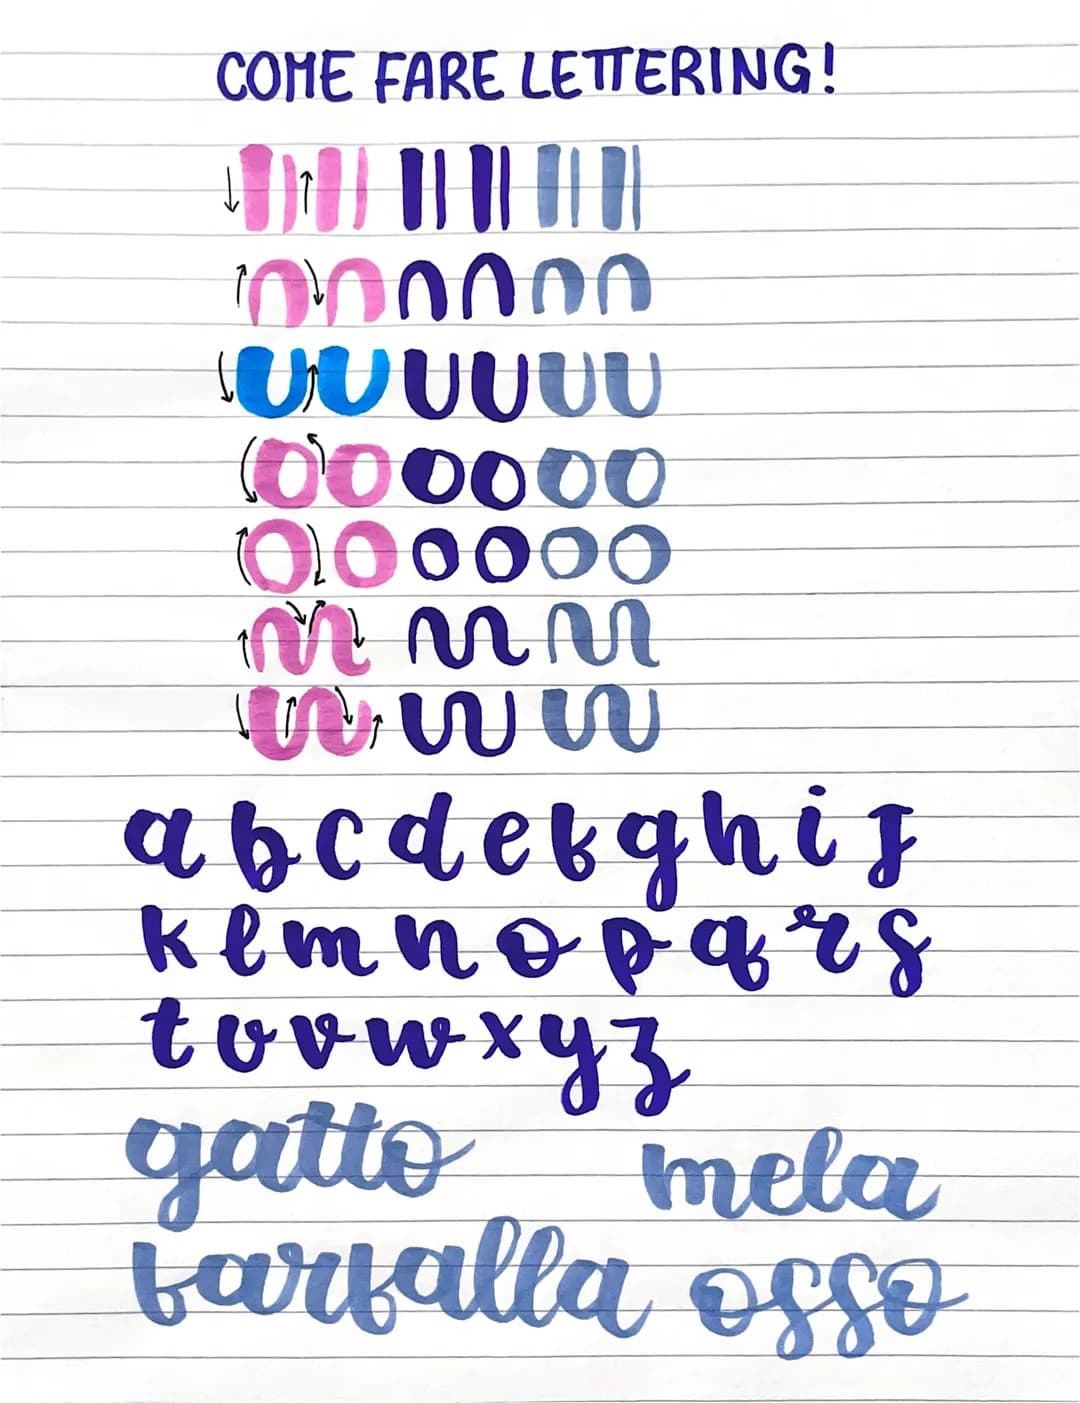 COME FARE LETTERING!
a b c d e f g h i j
k l m n o p q r s
t u v w x y z
gatto mela
farfalla osso